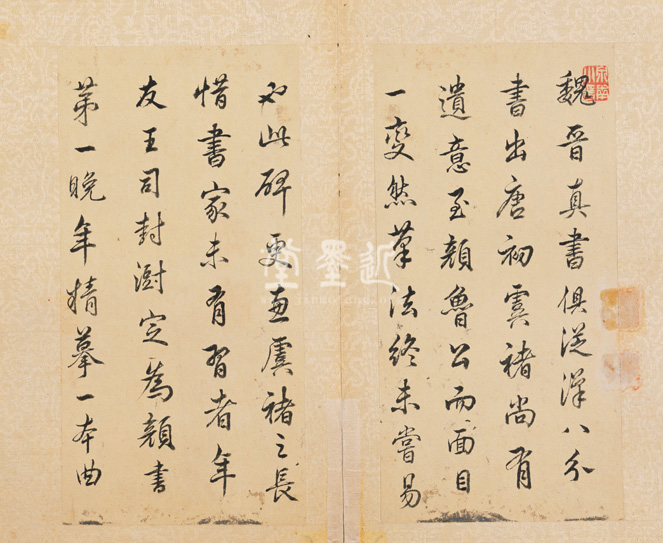 魏晉真書俱從漢八分
書出唐初虞褚尚有
遺意至顏魯公而面目
一變然筆法終未嘗易
也此碑更兼虞褚之長
惜書家未有習者年
友王司封澍定為顏書
第一晚年精摹一本曲
近墨堂